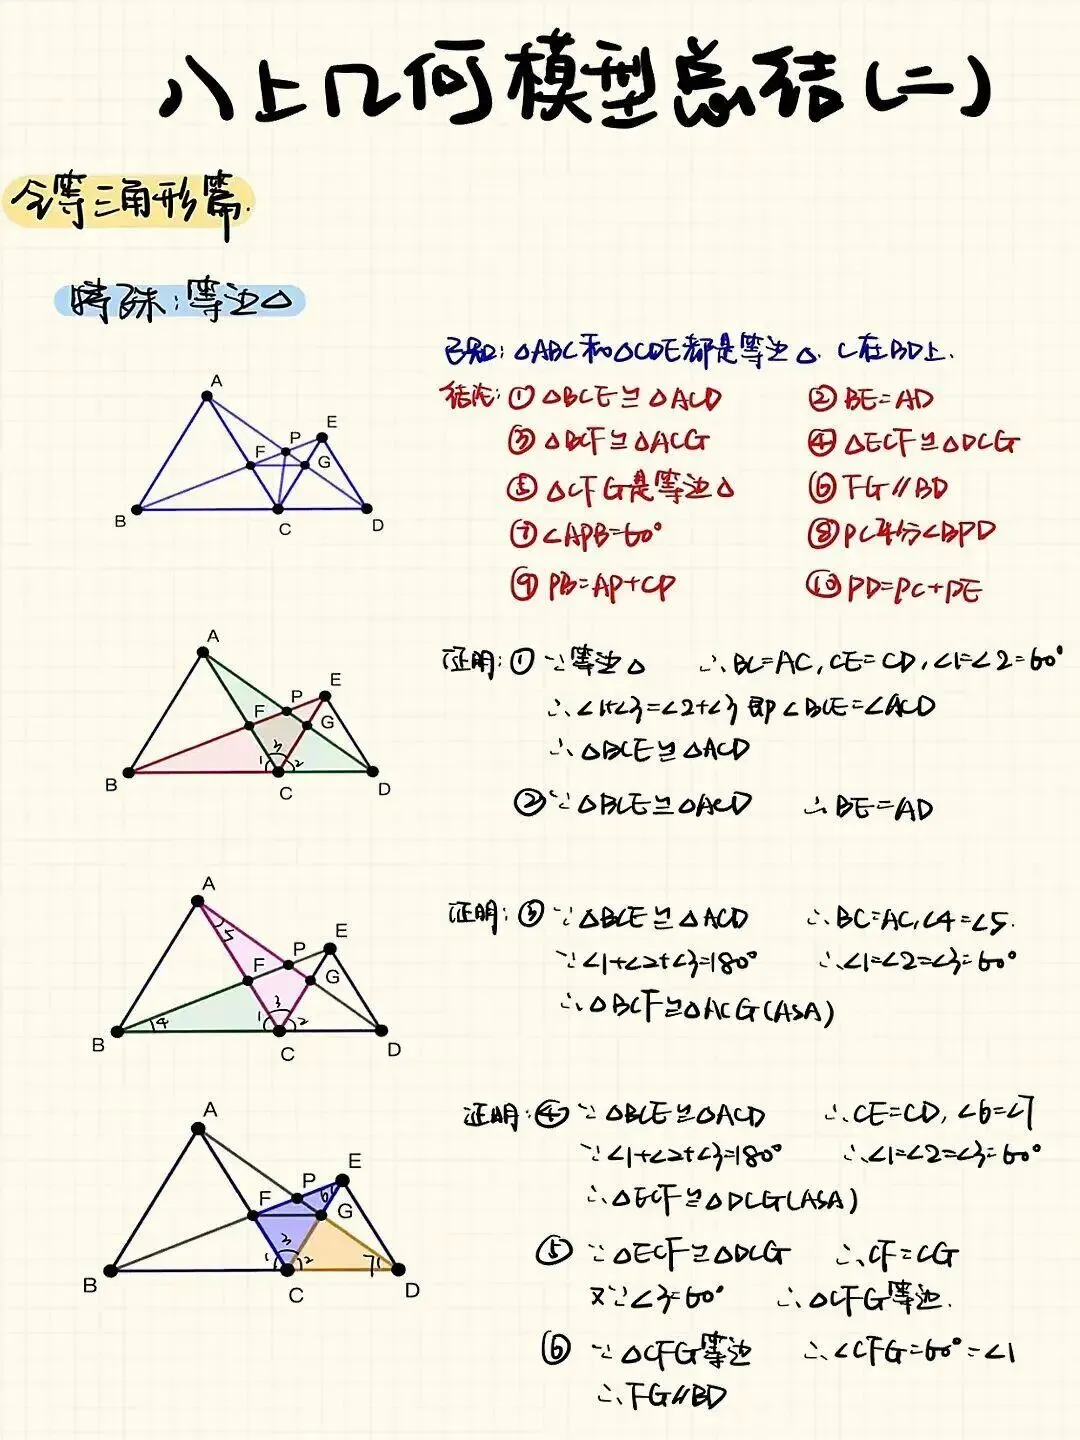 八上几何模型总结(二)
全等三角形篇.
特殊:等边△
已知:△ABC和△CDE都是等边△. C在BD上.
结论:① △BCE≌△ACD ② BE=AD
③ △BCF≌△ACG ④ △ECF≌△DCG
⑤ △CFG是等边△ ⑥ FG∥BD
⑦ ∠APB=60° ⑧ PC平分∠BPD
⑨ PB=AP+CP ⑩ PD=PC+PE
A
E
P
F
G
B
C
D
证明:① ∵等边△ ∴BC=AC,CE=CD,∠1=∠2=60°
∴∠1+∠3=∠2+∠3 即∠BCE=∠ACD
∴△BCE≌△ACD
② ∵△BCE≌△ACD ∴BE=AD
A
E
P
F
G
3
1
2
B
C
D
证明:③ ∵△BCE≌△ACD ∴BC=AC,∠4=∠5.
∵∠1+∠2+∠3=180° ∴∠1=∠2=∠3=60°
∴△BCF≌△ACG(ASA)
A
5
E
P
F
G
3
4
1
2
B
C
D
证明:④ ∵△BCE≌△ACD ∴CE=CD,∠6=∠7
∵∠1+∠2+∠3=180° ∴∠1=∠2=∠3=60°
∴△ECF≌△DCG(ASA)
⑤ ∵△ECF≌△DCG ∴CF=CG
又∵∠3=60° ∴△CFG等边.
⑥ ∵△CFG等边 ∴∠CFG=60°=∠1
∴FG∥BD
A
E
P
6
F
G
3
1
2
7
B
C
D